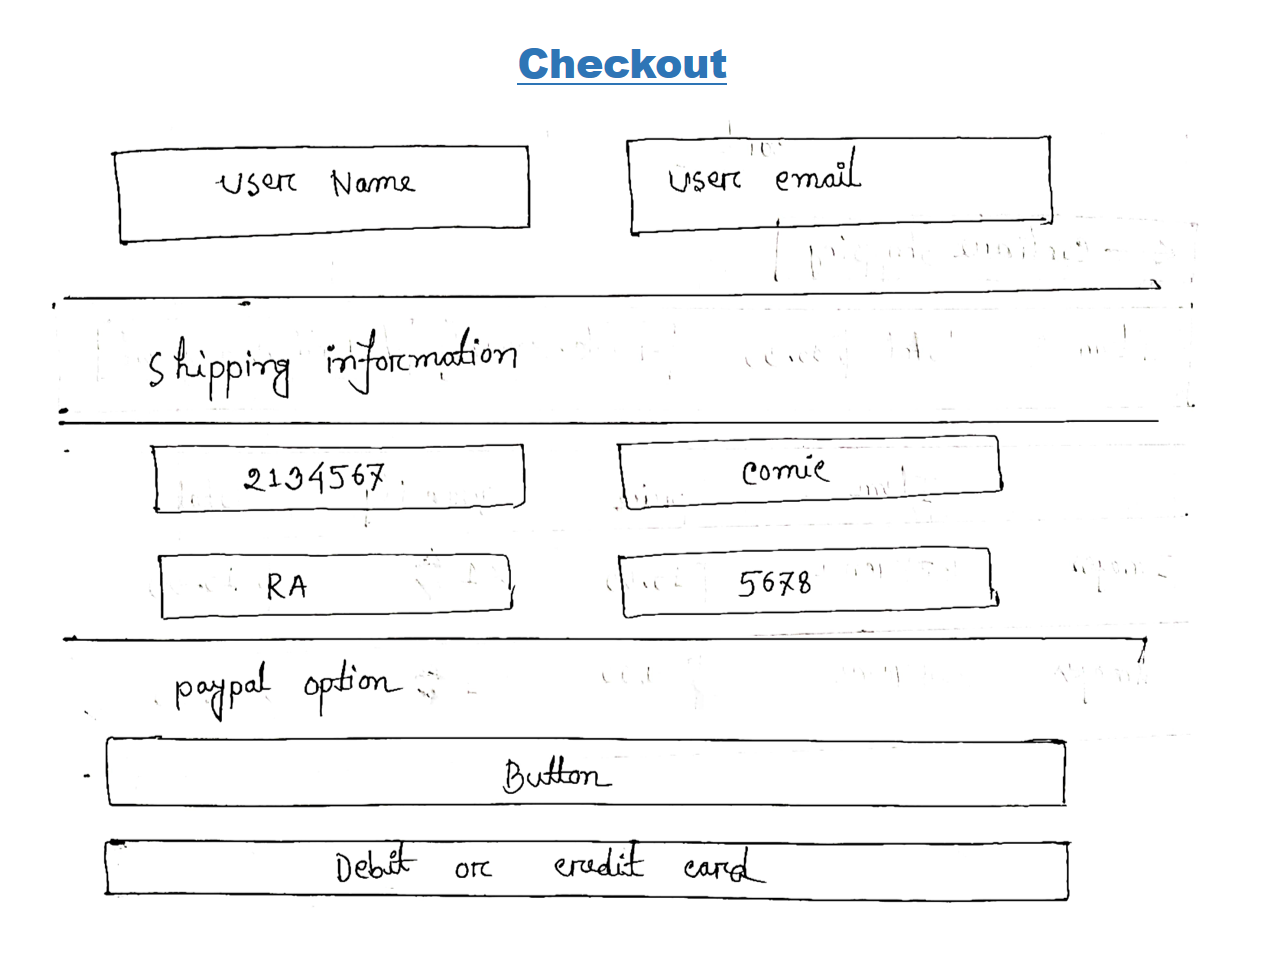 Checkout
User Name
User email
Shipping information
2134567
comic
RA
5678
paypal option
Button
Debit or credit card